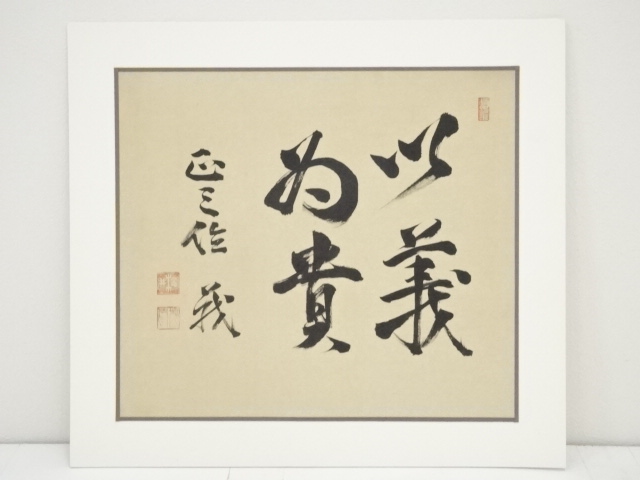 以義
為貴
正三位 茂